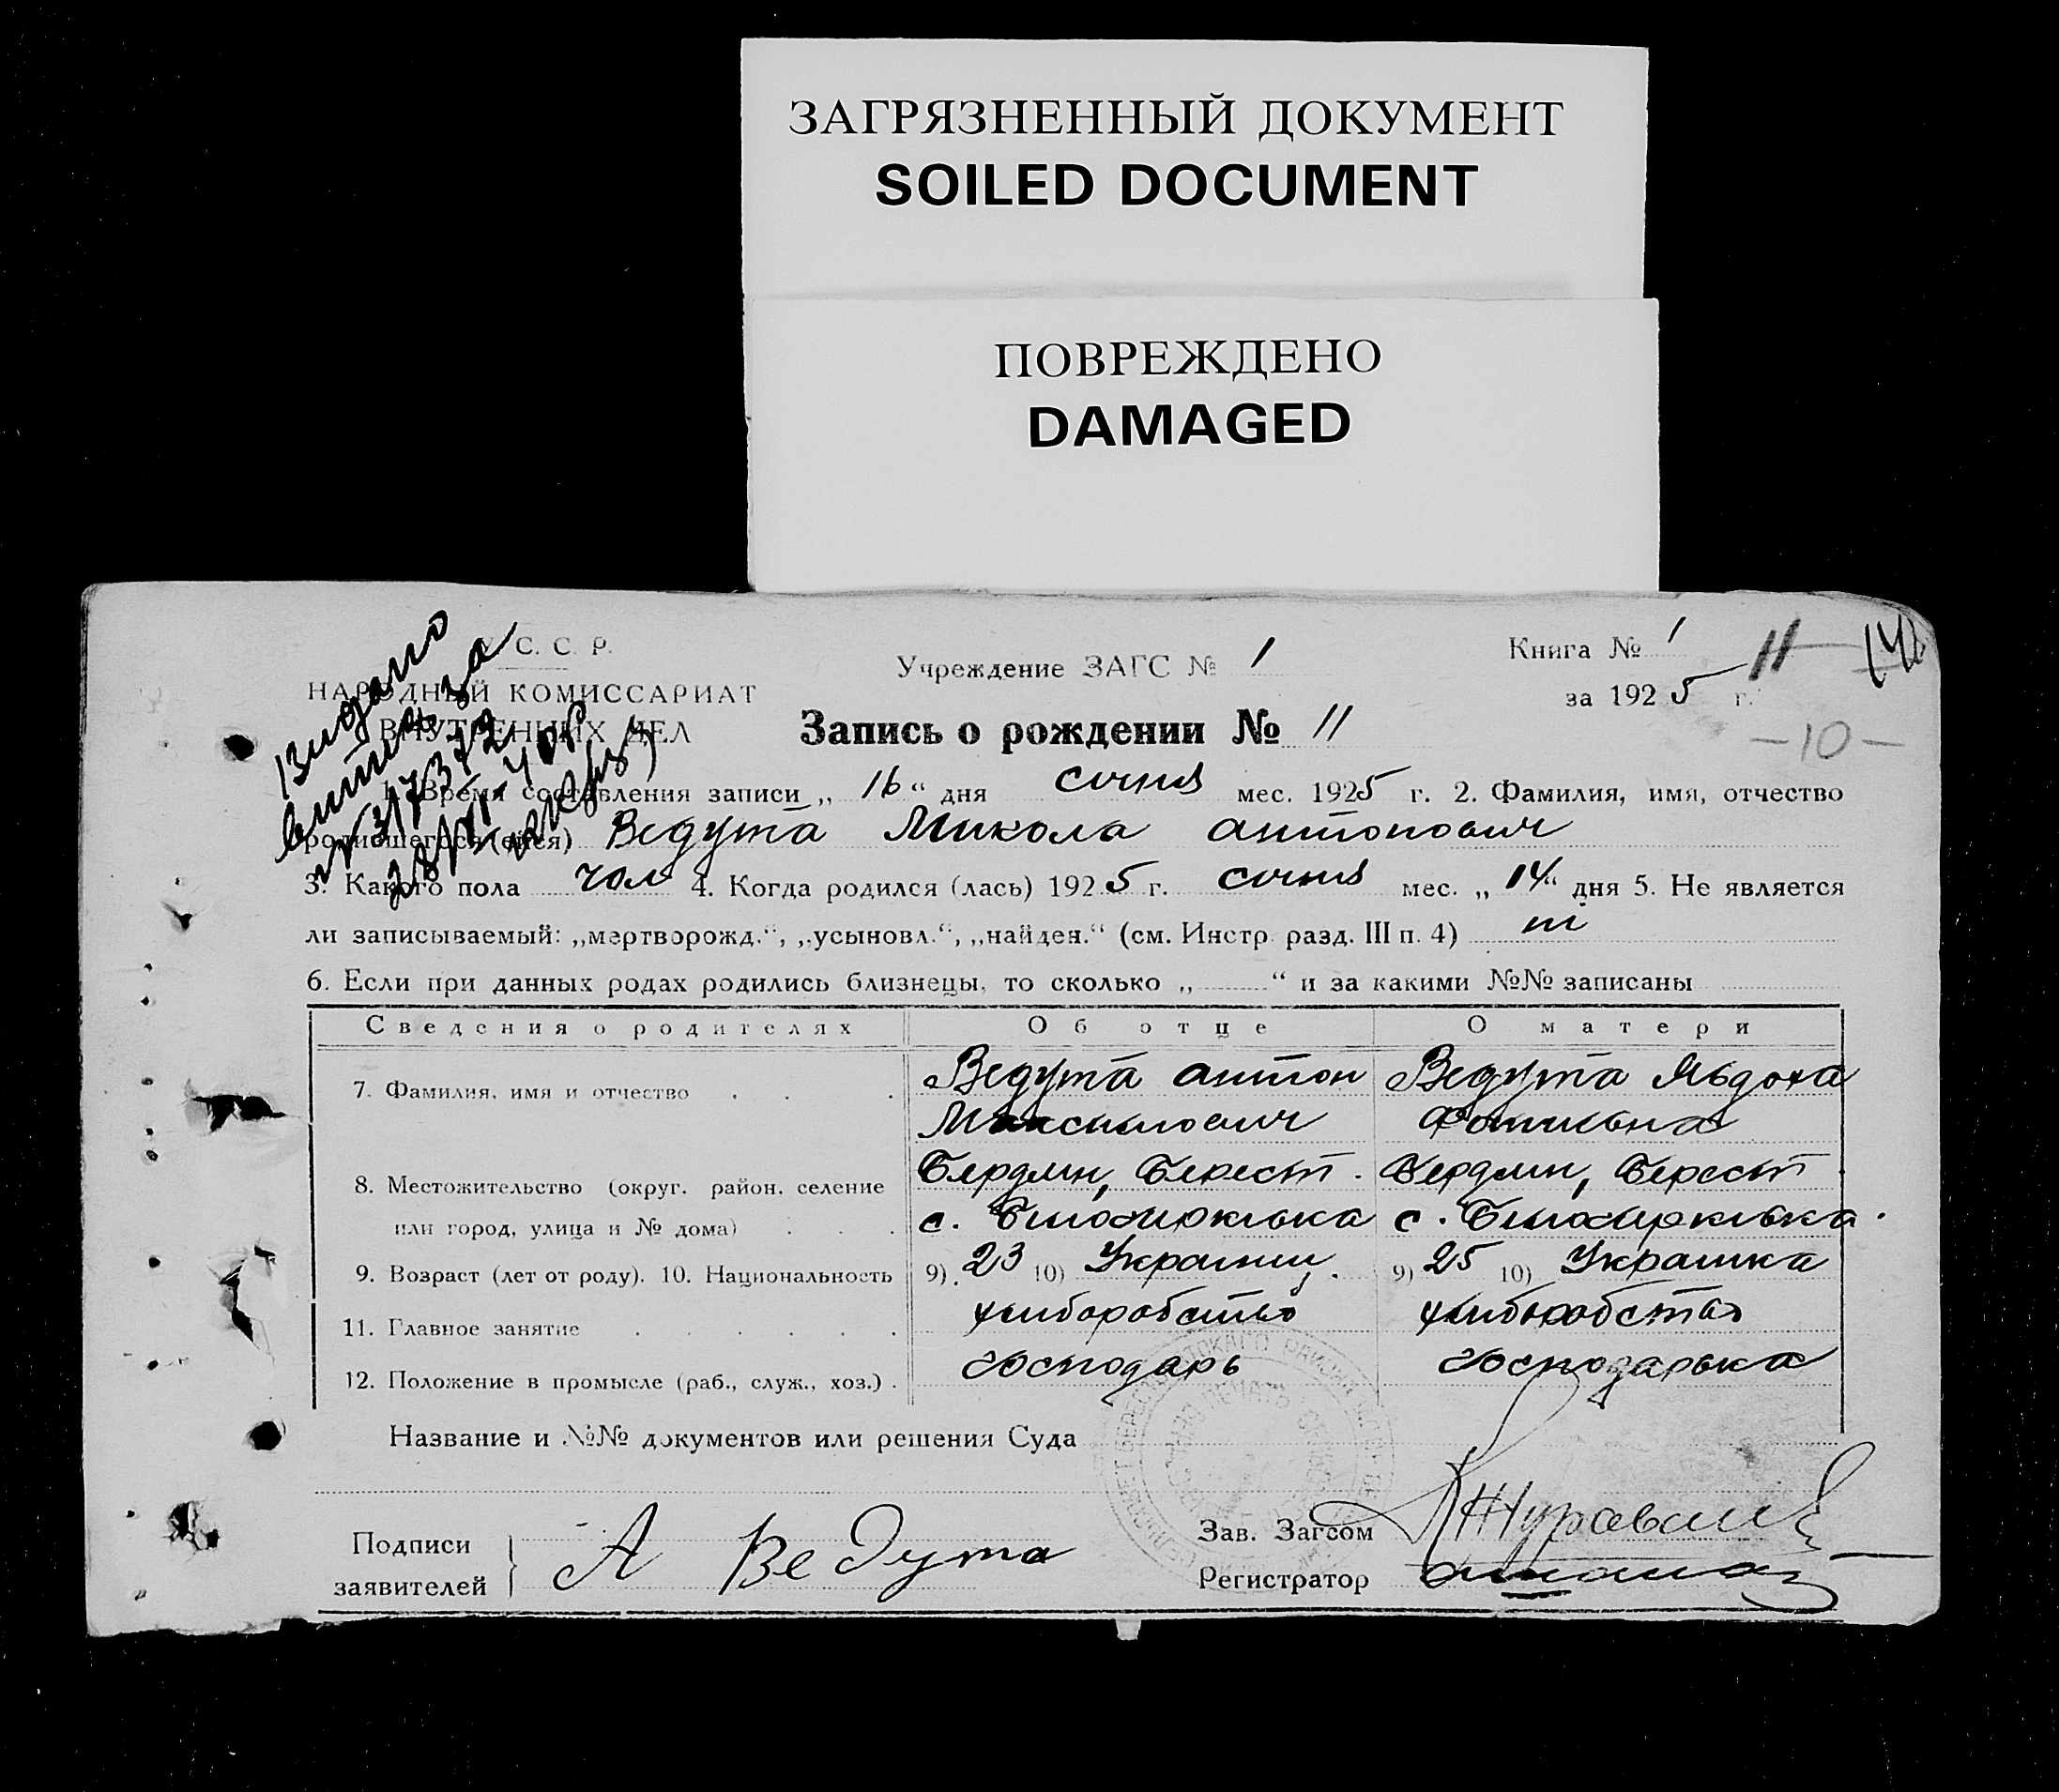 ЗАГРЯЗНЕННЫЙ ДОКУМЕНТ
SOILED DOCUMENT
ПОВРЕЖДЕНО
DAMAGED
С. С. Р.
НАРОДНЫЙ КОМИССАРИАТ
ВНУТРЕННИХ ДЕЛ
Видано
Учреждение ЗАГС № 1
Книга № 1
за 1925 г.
11
14
-10-
Запись о рождении № 11
1. Время составления записи „ 16 “ дня січня мес. 1925 г. 2. Фамилия, имя, отчество
родившегося (ейся) Ведута Микола Антонович
3. Какого пола чол 4. Когда родился (лась) 1925 г. січня мес. „ 14 “ дня 5. Не является
ли записываемый: „мертворожд.“, „усыновл.“, „найден.“ (см. Инстр. разд. III п. 4) ні
6. Если при данных родах родились близнецы, то сколько „ “ и за какими №№ записаны
Сведения о родителях Об отце О матери
7. Фамилия, имя и отчество Ведута Антон Ведута Явдоха
Максимович
8. Местожительство (округ. район, селение Бердян, Берест. Бердян, Берест
или город, улица и № дома) с. с.
9. Возраст (лет от роду). 10. Национальность 9) 23 10) Украинц. 9) 25 10) Українка
11. Главное занятие хліборобство хліборобство
12. Положение в промысле (раб., служ., хоз.) господарь господарька
Название и №№ документов или решения Суда
Подписи
заявителей А Ведута
Зав. Загсом
Регистратор